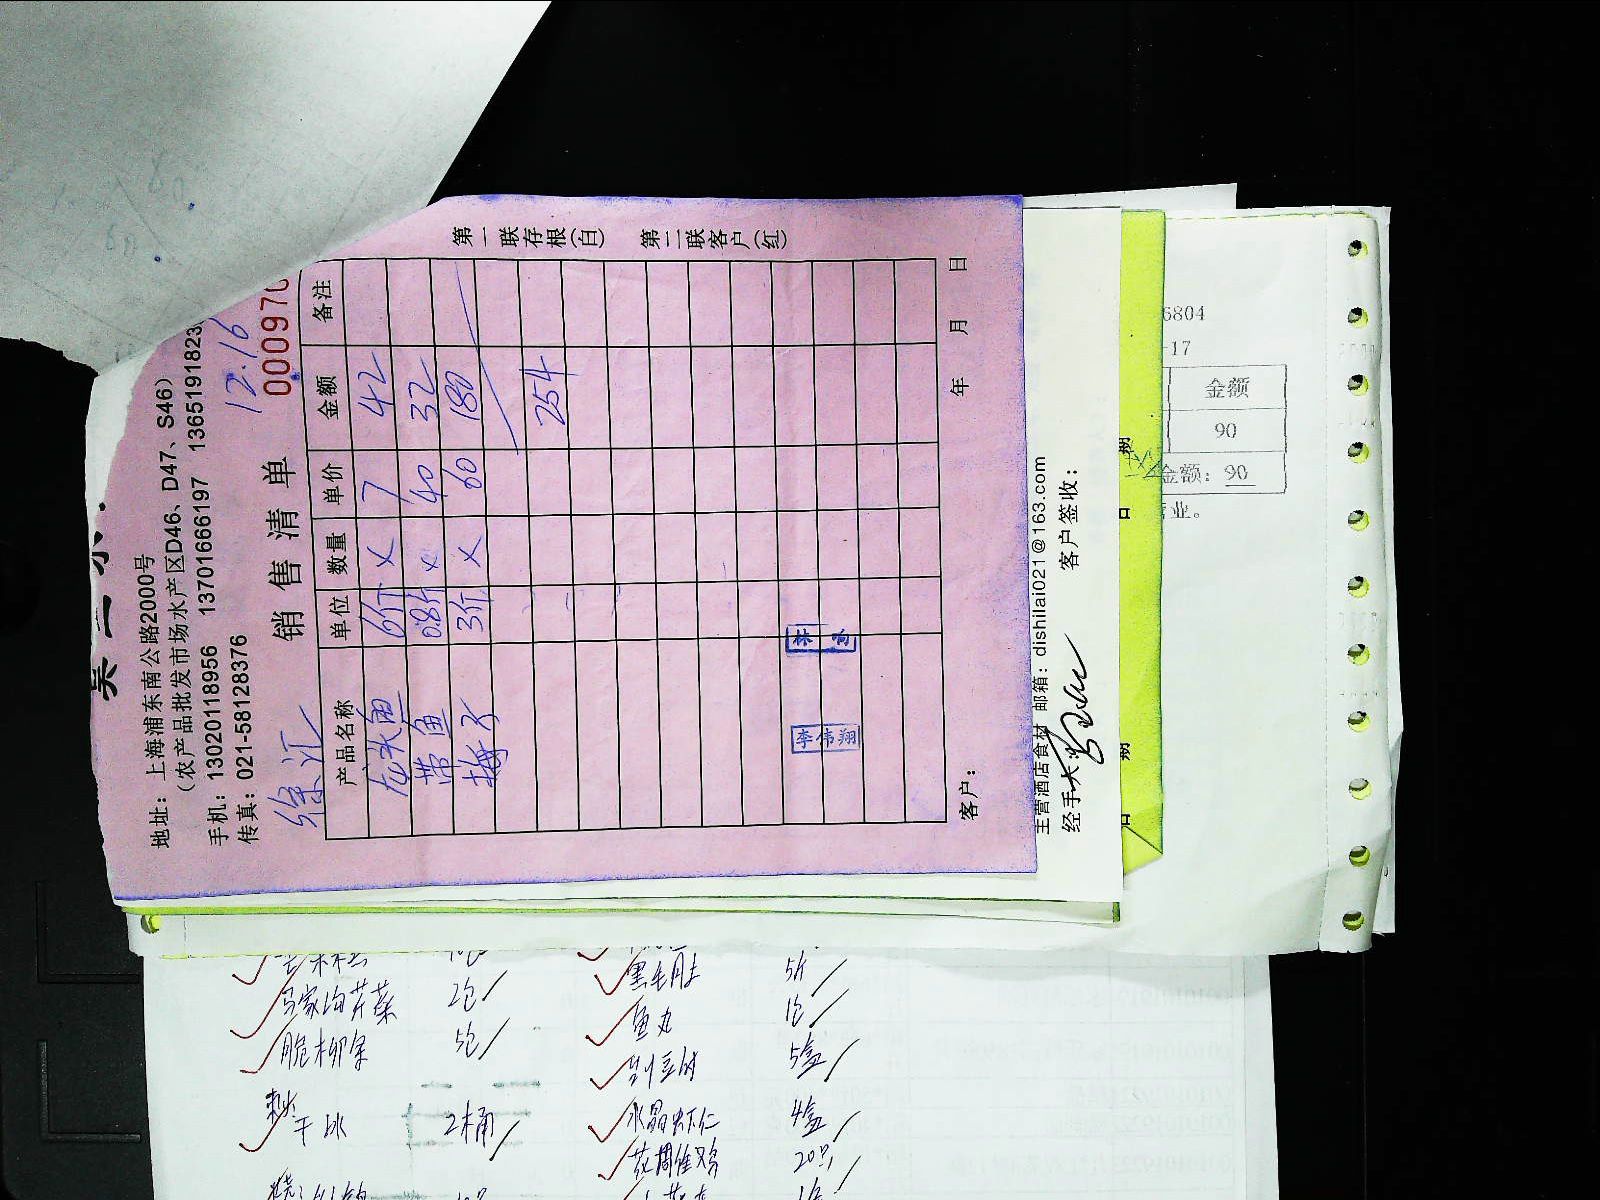 地址：上海浦东南公路2000号
（农产品批发市场水产区D46、D47、S46）
手机：13020118956 13701666197 1365191823
传真：021-58128376
12.16
销售清单
000970
徐汇
产品名称 单位 数量 单价 金额 备注
龙头鱼 6斤 × 7 42
带鱼 0.8斤 × 40 32
梅子 3斤 × 60 180
254
李伟翔
客户： 年 月 日
第一联存根（白） 第二联客户（红）
主营酒店食材 邮箱：dishilai021@163.com
经手人： 客户签收：
期
日
6804
-17
金额
90
金额：90
业。
马家沟芹菜 2包
脆柳条 5包
干冰 2桶
黑毛肚 5斤
鱼丸 1包
5盒
水晶虾仁 4盒
花雕醉鸡 20只